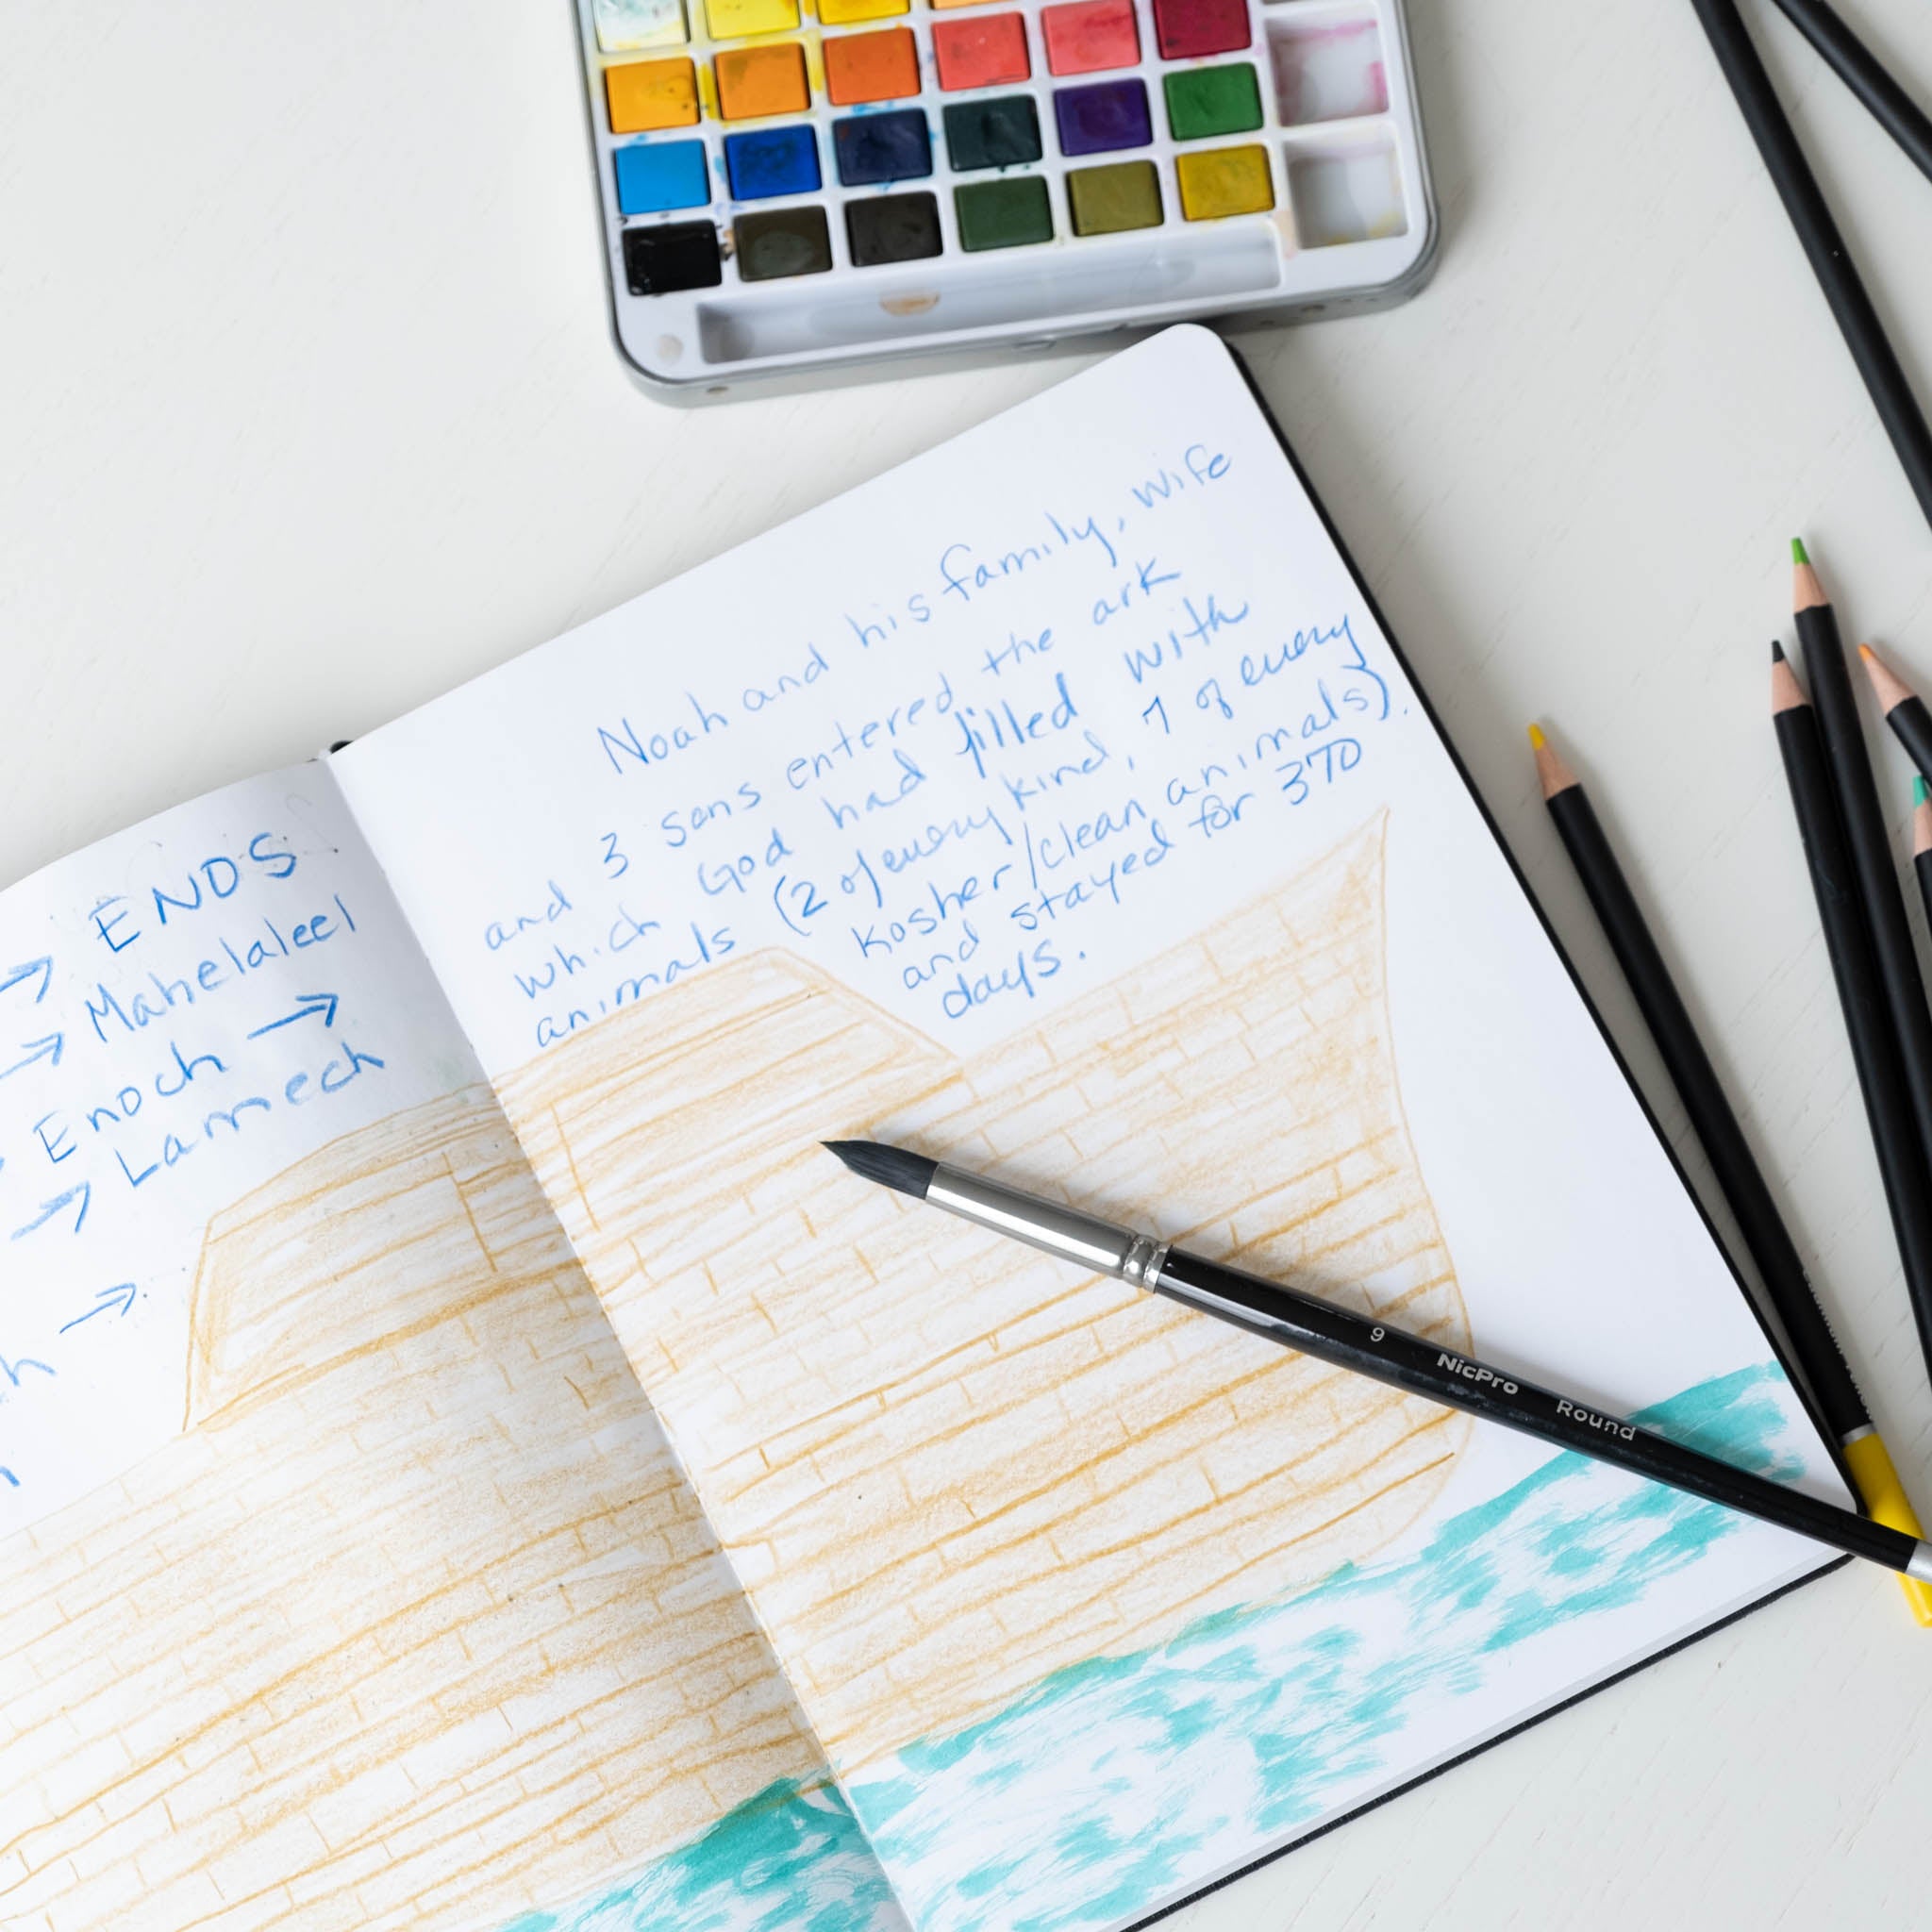 → ENDS
→ Mahelaleel
Enoch →
→ Lamech
→
h
Noah and his family, wife
and 3 sons entered the ark
which God had filled with
animals (2 of every kind, 7 of every
kosher/clean animals).
and stayed for 370
days.
9 NicPro Round